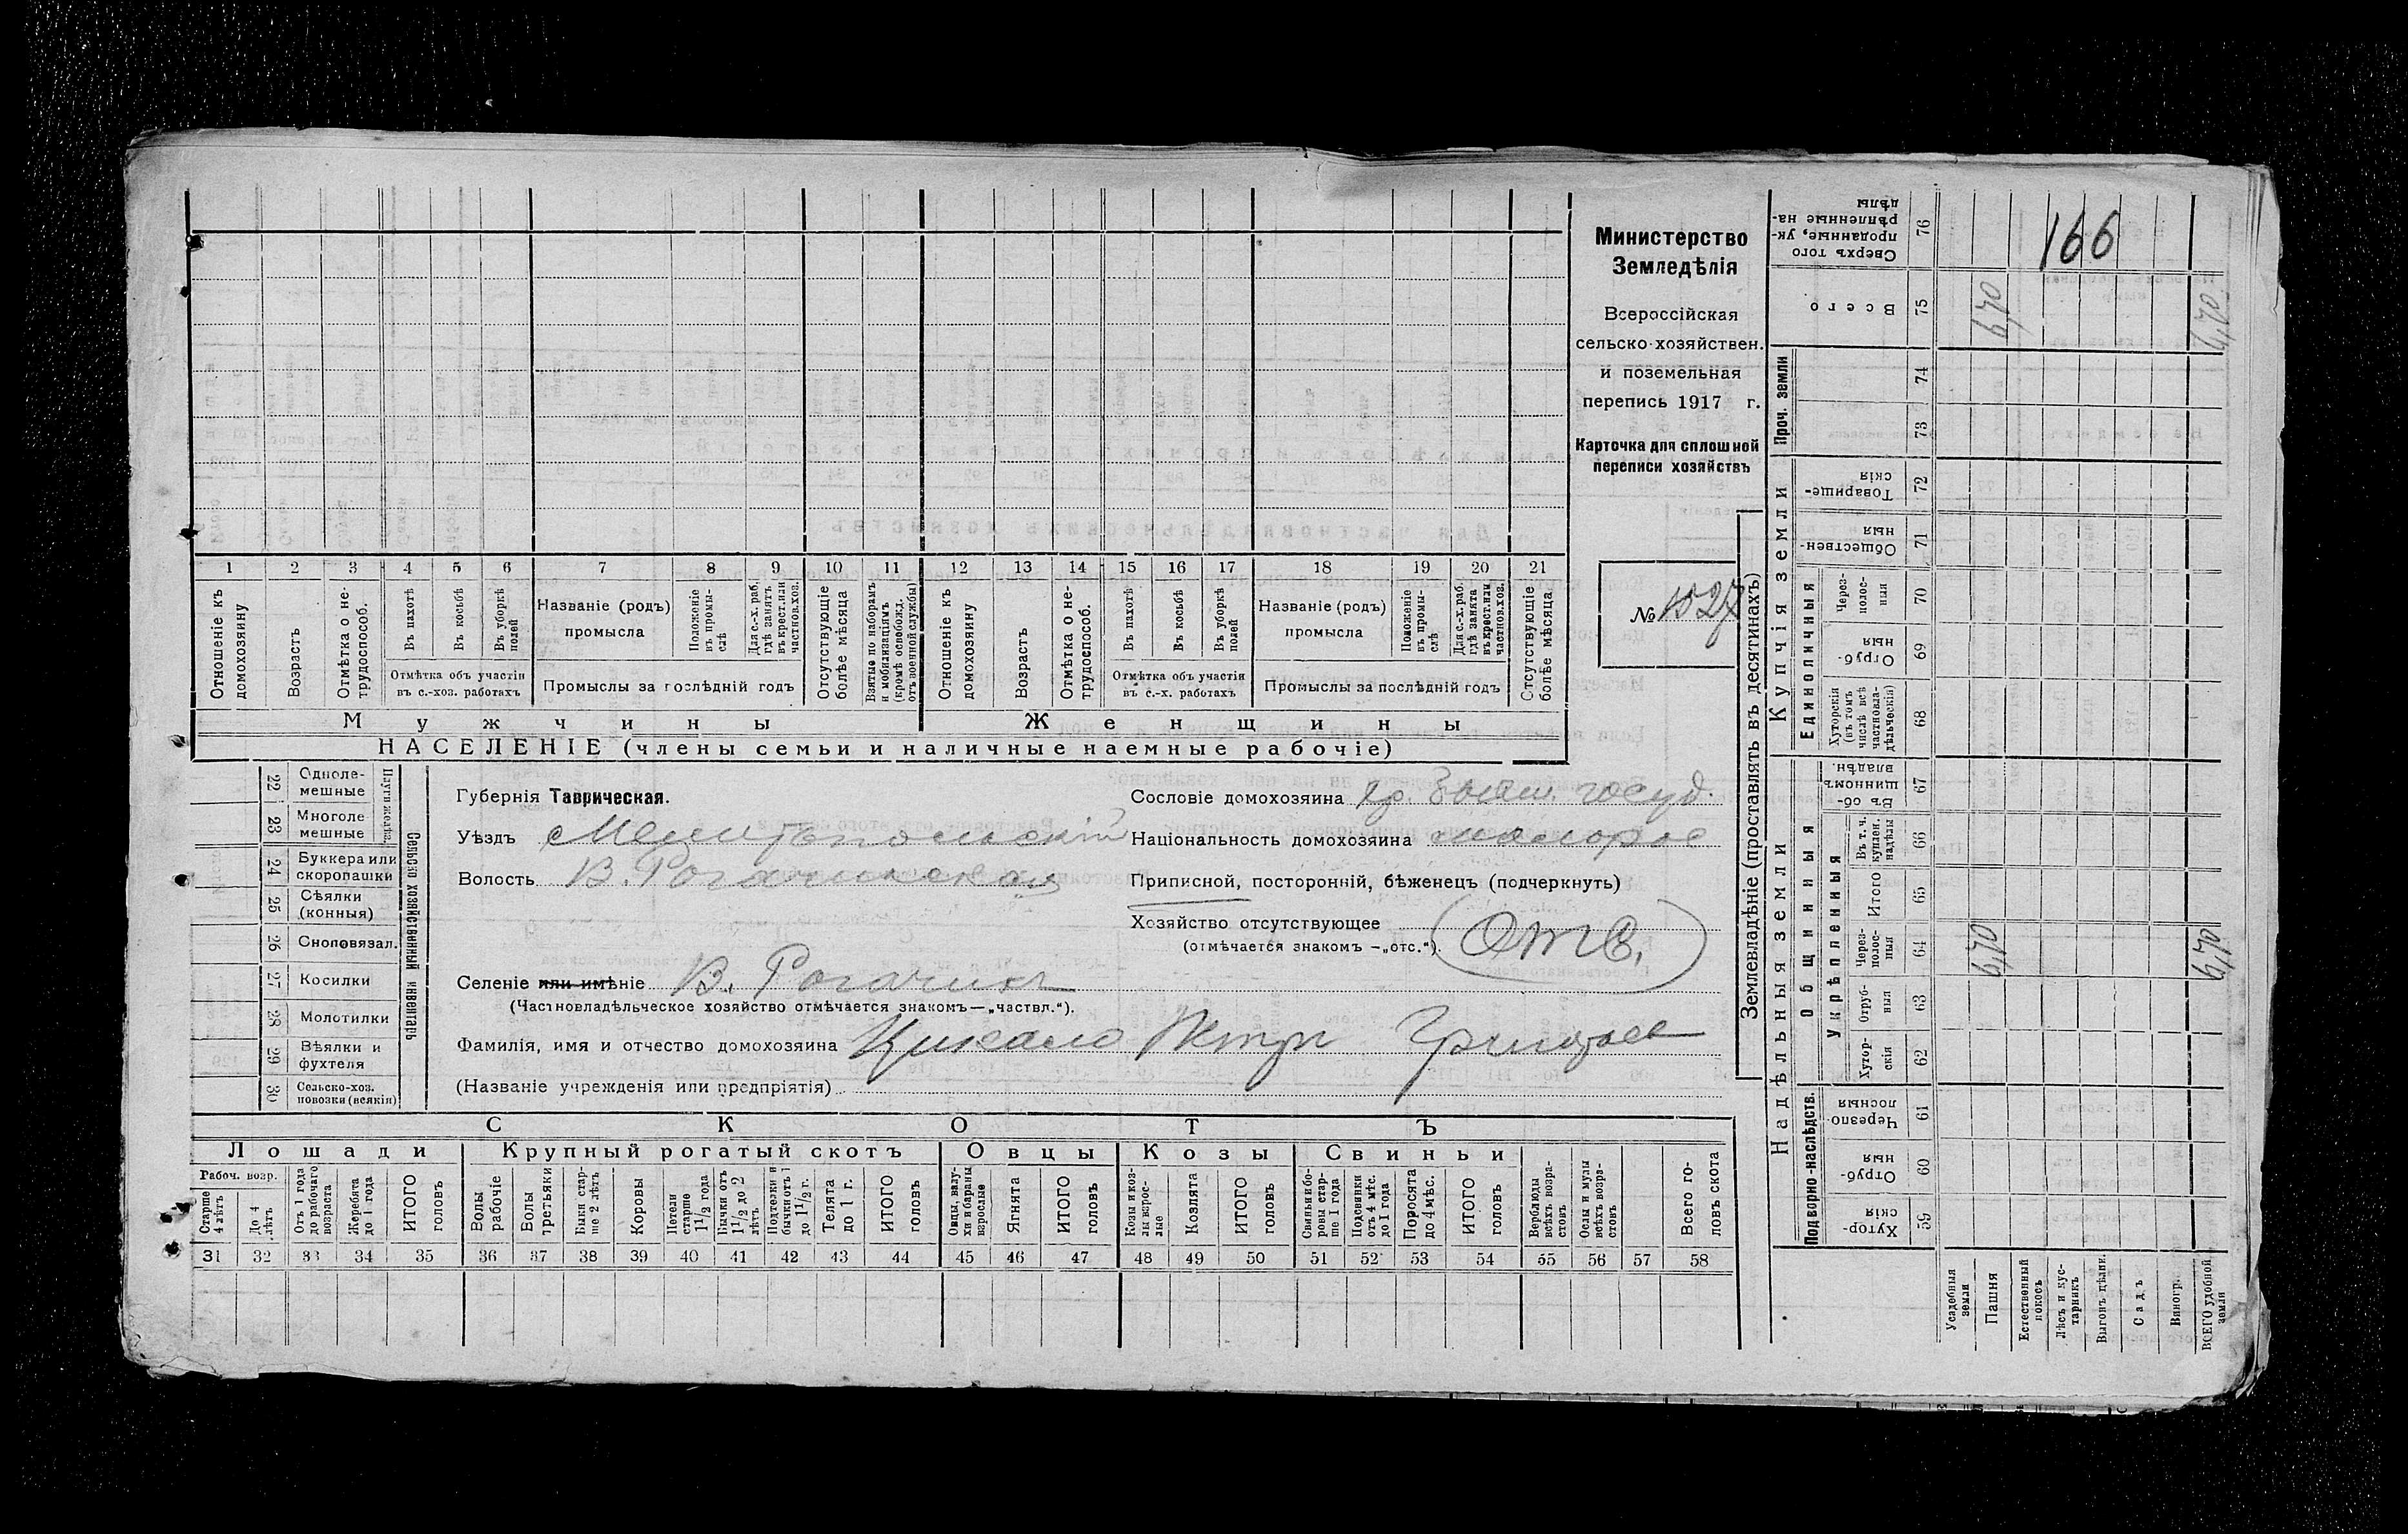 166
Министерство
Земледѣлія
Всероссійская
сельско-хозяйствен.
и поземельная
перепись 1917 г.
Карточка для сплошной
переписи хозяйствъ
№ 1527
1 2 3 4 5 6 7 8 9 10 11 12 13 14 15 16 17 18 19 20 21
Отношеніе къ домохозяину
Возрастъ
Отмѣтка о не-трудоспособ.
Въ пахотѣ
Въ косьбѣ
Въ уборкѣ полей
Отмѣтка объ участіи въ с.-хоз. работахъ
Названіе (родъ) промысла
Положеніе въ промы-слѣ
Для с.-х. раб. гдѣ занятъ въ крест. или частнов. хоз.
Промыслы за послѣдній годъ
Отсутствующіе болѣе мѣсяца
Взятые по наборамъ и мобилизаціямъ (кромѣ освобожд. отъ военной службы)
Отношеніе къ домохозяину
Возрастъ
Отмѣтка о не-трудоспособ.
Въ пахотѣ
Въ косьбѣ
Въ уборкѣ полей
Отмѣтка объ участіи въ с.-х. работахъ
Названіе (родъ) промысла
Положеніе въ промы-слѣ
Для с.-х. раб. гдѣ занята въ крест. или частнов. хоз.
Промыслы за послѣдній годъ
Отсутствующіе болѣе мѣсяца
Мужчины
Женщины
НАСЕЛЕНІЕ (члены семьи и наличные наемные рабочіе)
Сельско хозяйственный инвентарь
Плуги желѣз.
22 Одноле-мешные
23 Многоле мешные
24 Буккера или скоропашки
25 Сѣялки (конныя)
26 Сноповязал.
27 Косилки
28 Молотилки
29 Вѣялки и фухтеля
30 Сельско-хоз. повозки (всякія)
Губернія Таврическая.
Уѣздъ Мелитопольскій
Волость В. Рогачикская
Селеніе или имѣніе В. Рогачикъ
(Частновладѣльческое хозяйство отмѣчается знакомъ—„частвл.“).
Фамилія, имя и отчество домохозяина Кикало Петръ Григорьев
(Названіе учрежденія или предпріятія)
Сословіе домохозяина кр. бывш. госуд.
Національность домохозяина малорос
Приписной, посторонній, бѣженецъ (подчеркнуть)
Хозяйство отсутствующее
(отмѣчается знакомъ —„отс.“). Отс.
СКОТЪ
Лошади
Крупный рогатый скотъ
Овцы
Козы
Свиньи
Рабоч. возр.
Старше 4 лѣтъ
До 4 лѣтъ
Отъ 1 года до рабочаго возраста
Жеребята до 1 года
ИТОГО головъ
Волы рабочіе
Волы третьяки
Быки стар-ше 2 лѣтъ
Коровы
Нетели старше 1 1/2 года
Бычки отъ 1 1/2 до 2 лѣтъ
Подтелки и бычки отъ 1 до 1 1/2 г.
Телята до 1 г.
ИТОГО головъ
Овцы, валу-хи и бараны взрослые
Ягнята
ИТОГО головъ
Козы и коз-лы взрос-лые
Козлята
ИТОГО головъ
Свиньи и бо-ровы стар-ше 1 года
Подсвинки отъ 4 мѣс. до 1 года
Поросята до 4 мѣс.
ИТОГО головъ
Верблюды всѣхъ возра-стовъ
Ослы и мулы всѣхъ возра-стовъ
Всего го-ловъ скота
31 32 33 34 35 36 37 38 39 40 41 42 43 44 45 46 47 48 49 50 51 52 53 54 55 56 57 58
Землевладѣніе (проставлять въ десятинахъ)
Купчія земли
Надѣльныя земли
Проч. земли
Единоличныя
Общинныя
Укрѣпленныя
Подворно-наслѣдств.
Сверхъ того проданные, ук-рѣпленные на-дѣлы 76
Всего 75 6,70 6,70
74
73
Товарище-скія 72
Обществен-ныя 71
Через-полос-ныя 70
Отруб-ныя 69
Хуторскія (въ томъ числѣ всѣ частновла-дѣльческія) 68
Въ об-щинномъ владѣн. 67
Въ т. ч. куплен. надѣлы 66
Итого 65
Через-полос-ныя 64 6,70 6,70
Отруб-ныя 63
Хутор-скія 62
Черезпо-лосныя 61
Отруб-ныя 60
Хутор-скія 59
Усадебныя земли
Пашня
Естественный покосъ
Лѣсъ и кус-тарникъ
Выгонъ цѣлин.
Садъ
Виногр.
ВСЕГО удобной земли